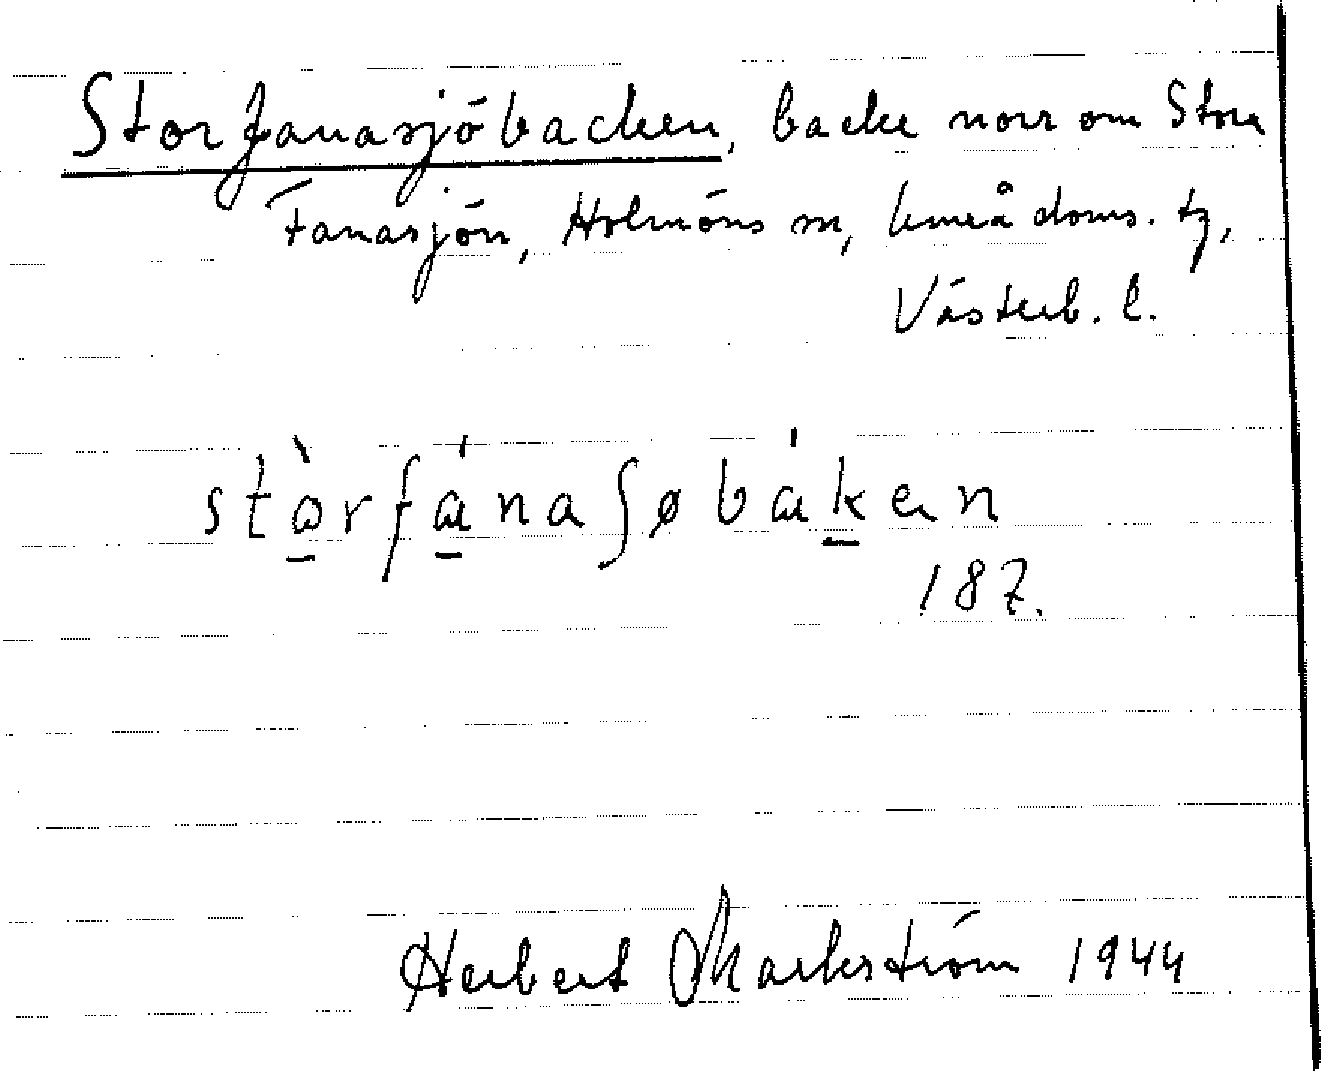 Storfanasjöbacken, backe norr om Stora
Fanasjön, Holmöns sn, Umeå doms. tg,
Västerb. l.
stòrfánaʃøbáken
187.
Herbert Markström 1944